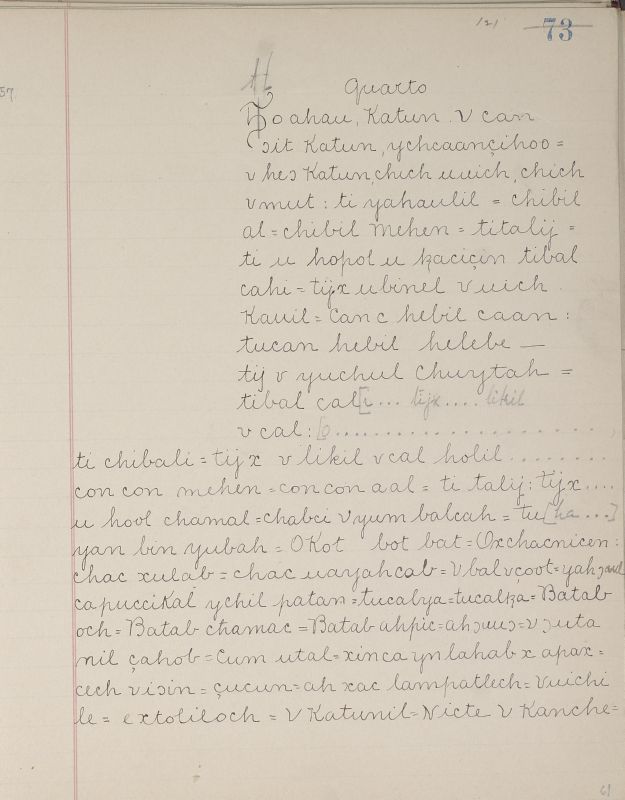 121 73
57
Quarto
Ho ahau, Katun. v can
ɔit Katun, ychcaançihoo =
v heɔ Katun, chich uuich, chich
vmut: ti yahaulil = chibil
al = chibil mehen = titalij =
ti u hopol u kaciçin tibal
cahi = tijx ubinel v uich.
Kauil = Can c hebil caan:
tucan hebil helebe —
tij v yuchul Chuytah =
tibal cal[i... tijx.... likil
v cal: [o....................
ti chibali = tijx v likil v cal holil ........
con con mehen = con con aal = ti talij: tijx....
u hool chamal = chabci v yum balcah = tu[ha ...]
yan bin yubah = OKot bot bat = Oxchacnicen:
chac xulab = chac uayahcab = v bal vcoot = yahɔaul
capuccikal ychil patan = tucalya = tucalka = Batab
och = Batab chamac = Batab ahpic = ahɔuuɔ = v ɔuta
nil çahob = Cum utal = xinca ynlahab x apax =
cech viɔin = çucun = ah xac lampatlech = vuichi
le = extoliloch = v Katunil = Nicte v Kanche =
61